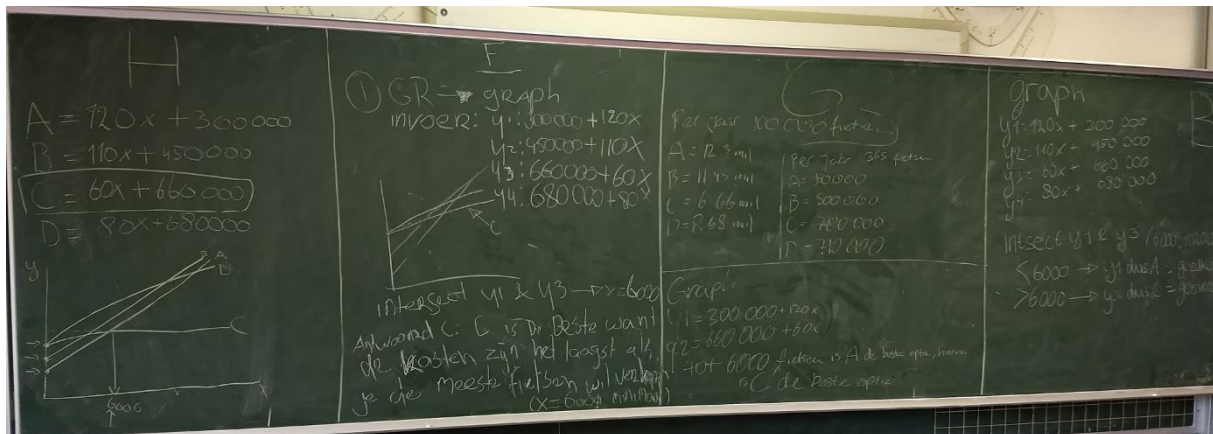 H
A = 120x + 300000
B = 110x + 450000
C = 60x + 660000
D = 80x + 680000
y
B A
D
C
x
6000
F
① GR → graph
invoer: y1: 300000 + 120x
y2: 450000 + 110x
y3: 660000 + 60x
y4: 680000 + 80x
C
intersect y1 & y3 → x = 6000
Antwoord C: C is De Beste want
de kosten zijn het laagst als
je de meeste fietsen wil
(x = 6001 minimaal)
G
Per jaar 100 000 fietsen
A = 12.3 mil
B = 11.45 mil
C = 6.66 mil
D = 8.68 mil
Per jaar 365 fietsen
B = 500.000
C = 700.000
D = 710.000
Graph
y1 = 300.000 + 120x
y2 = 660.000 + 60x
tot 6000 fietsen is A de beste optie, hierna
is C de beste optie
graph
y1 = 120x + 300 000
y2 = 110x + 450 000
y3 = 60x + 660 000
y4 = 80x + 680 000
B
Intsect y1 & y3
< 6000 → y1 dus A =
> 6000 → y3 dus C =